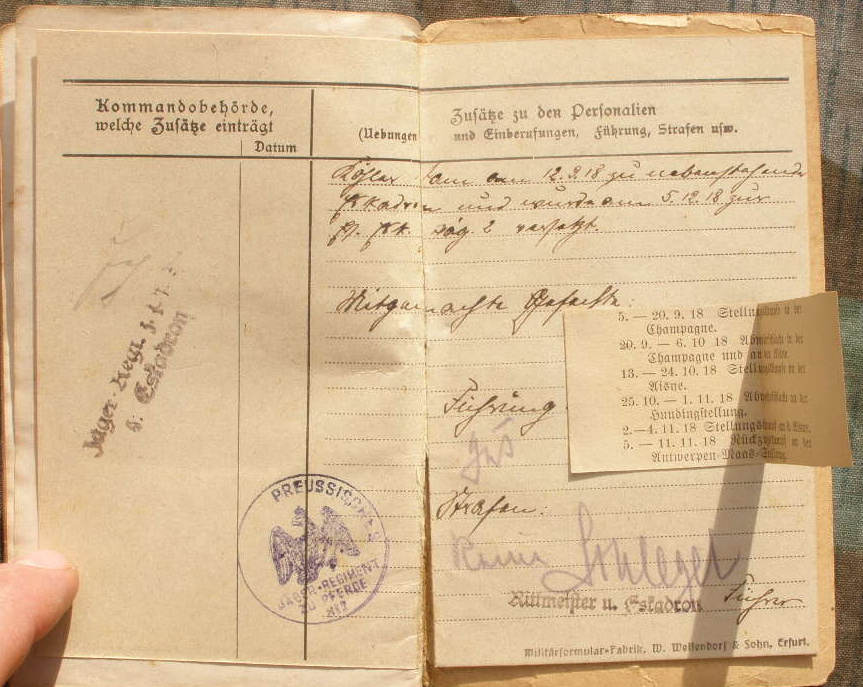 Kommandobehörde,
welche Zusätze einträgt
Datum
Zusätze zu den Personalien
(Uebungen und Einberufungen, Führung, Strafen usw.
am 12.9.18 zu nebenstehender
Eskadron und wurde am 5.12.18 zur
2 versetzt.
Mitgemachte Gefechte:
5. — 20. 9. 18 Stellungskampf in der
Champagne.
20. 9. — 6. 10 18 Abwehrschlacht in der
Champagne und an der
13. — 24. 10. 18 Stellungskampf an der
Aisne.
25. 10. — 1. 11. 18 Abwehrschlacht in der
Hundingstellung.
2.—4. 11. 18 Stellungskampf
5. — 11. 11. 18 Rückzug an der
Antwerpen-Maas-Stellung.
Führung
Gut
Strafen:
Keine
Schlegel
Rittmeister u. Eskadron Führer
Jäger-Regt. z. Pf.
Eskadron
PREUSSISCHES
JÄGER-REGIMENT
ZU PFERDE
Militärformular-Fabrik, W. Wellendorf & Sohn, Erfurt.